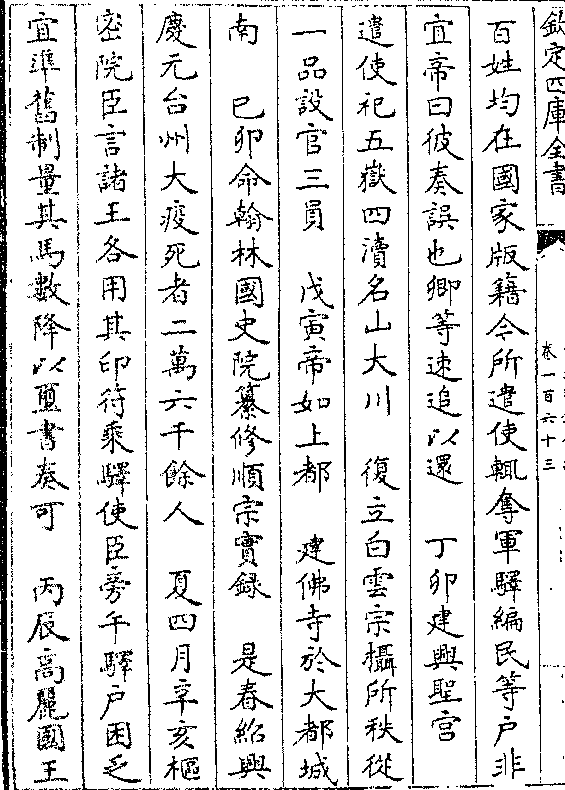 欽定四庫全書
卷一百六十三
百姓均在國家版籍今所遣使輒奪軍驛編民等户非
宜帝曰彼奏誤也卿等速追以還　丁卯建興聖宫
遣使祀五嶽四瀆名山大川　復立白雲宗攝所秩從
一品設官三員　戊寅帝如上都　建佛寺於大都城
南　己卯命翰林國史院纂修順宗實録　是春紹興
慶元台州大疫死者二萬六千餘人　夏四月辛亥樞
密院臣言諸王各用其印符乘驛使臣旁午驛户困乏
宜準舊制量其馬數降以璽書奏可　丙辰高麗國王